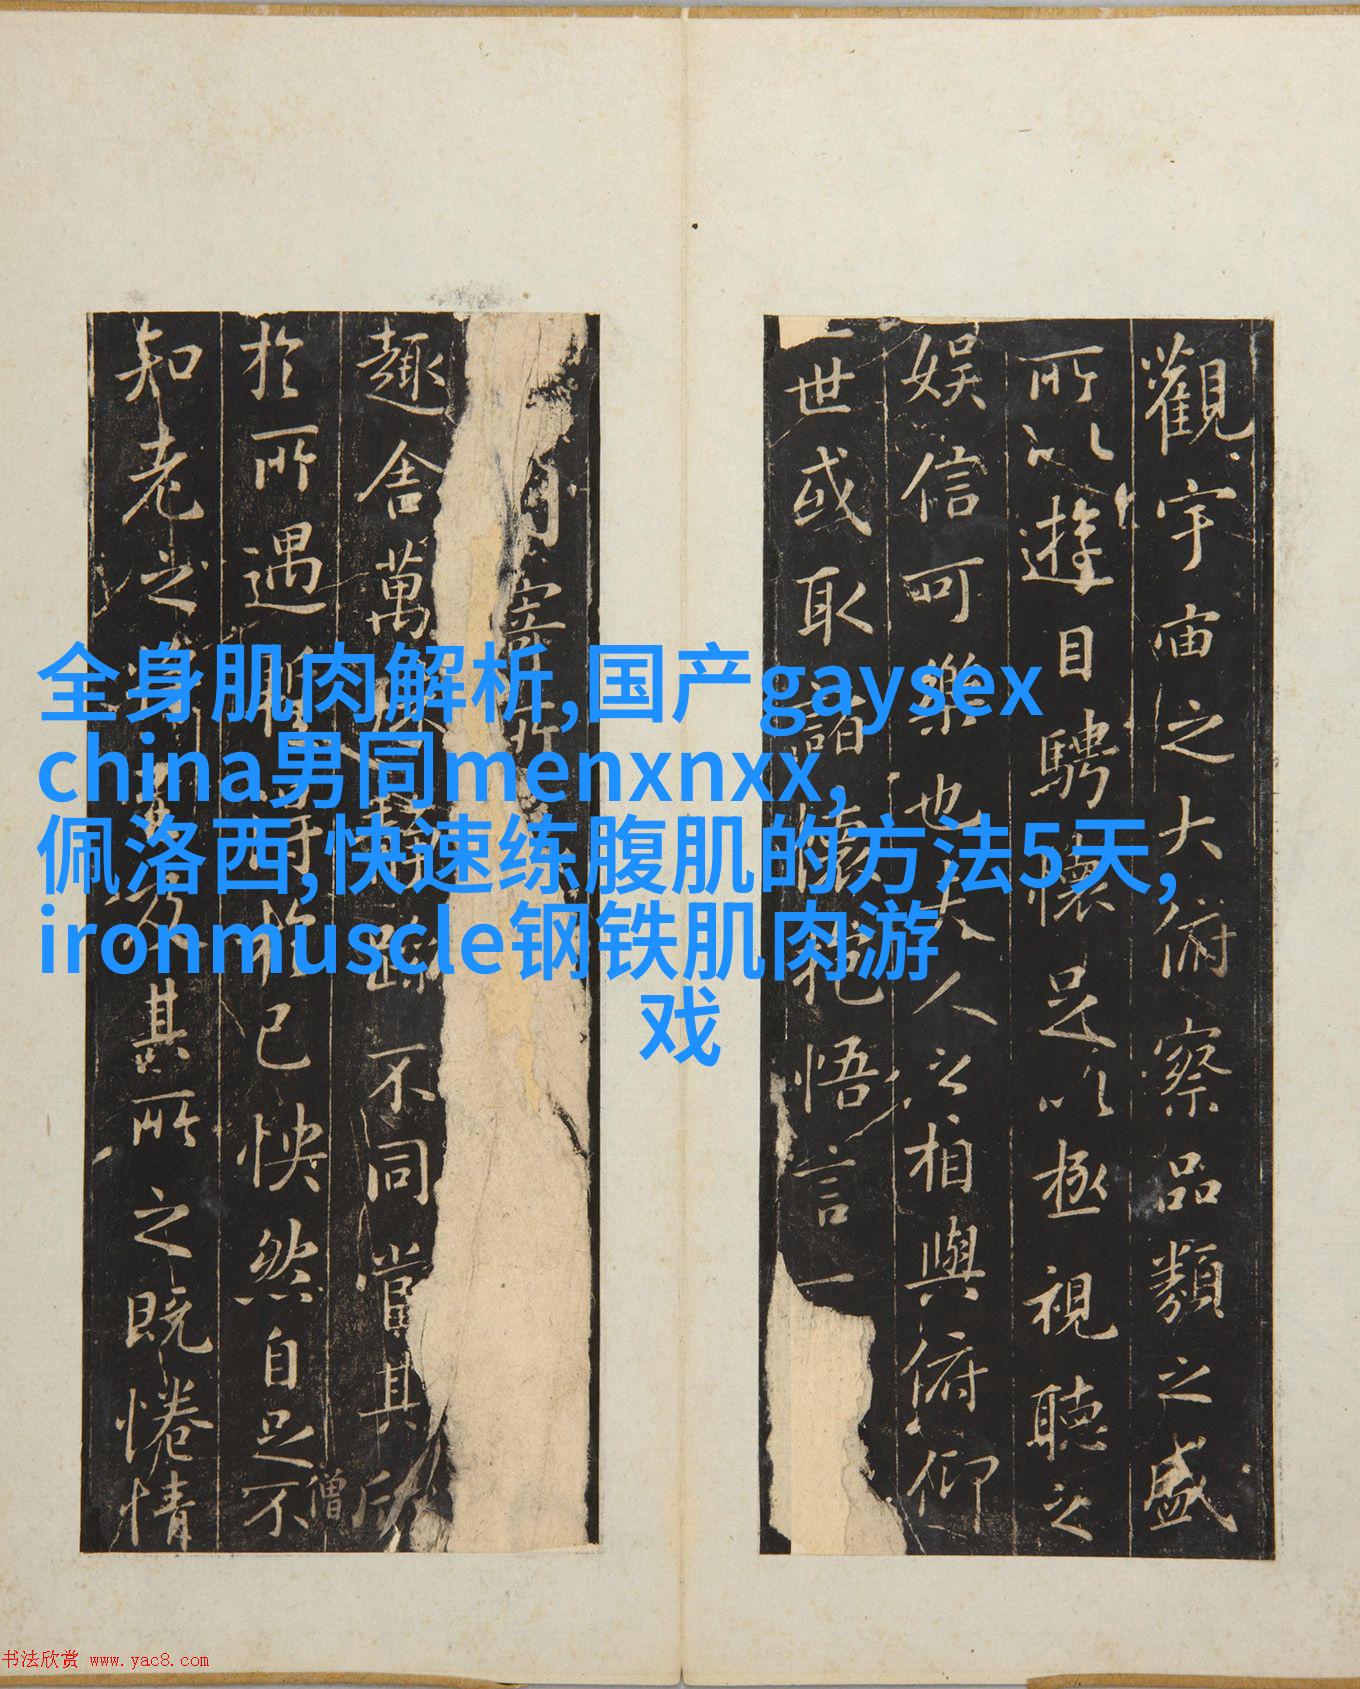 觀宇宙之大俯察品類之盛
所以遊目騁懷足以極視聽之
娱信可樂也夫人之相與俯仰
世或取諸懷抱悟言一
寄所
趣舍萬不同當其欣
僧
於所遇得於己怏然自足不
知老之及其所之既惓情
全身肌肉解析,国产gaysex
china男同menxnxx,
佩洛西,快速练腹肌的方法5天,
ironmuscle钢铁肌肉游
戏
书法欣赏 www.yac8.com